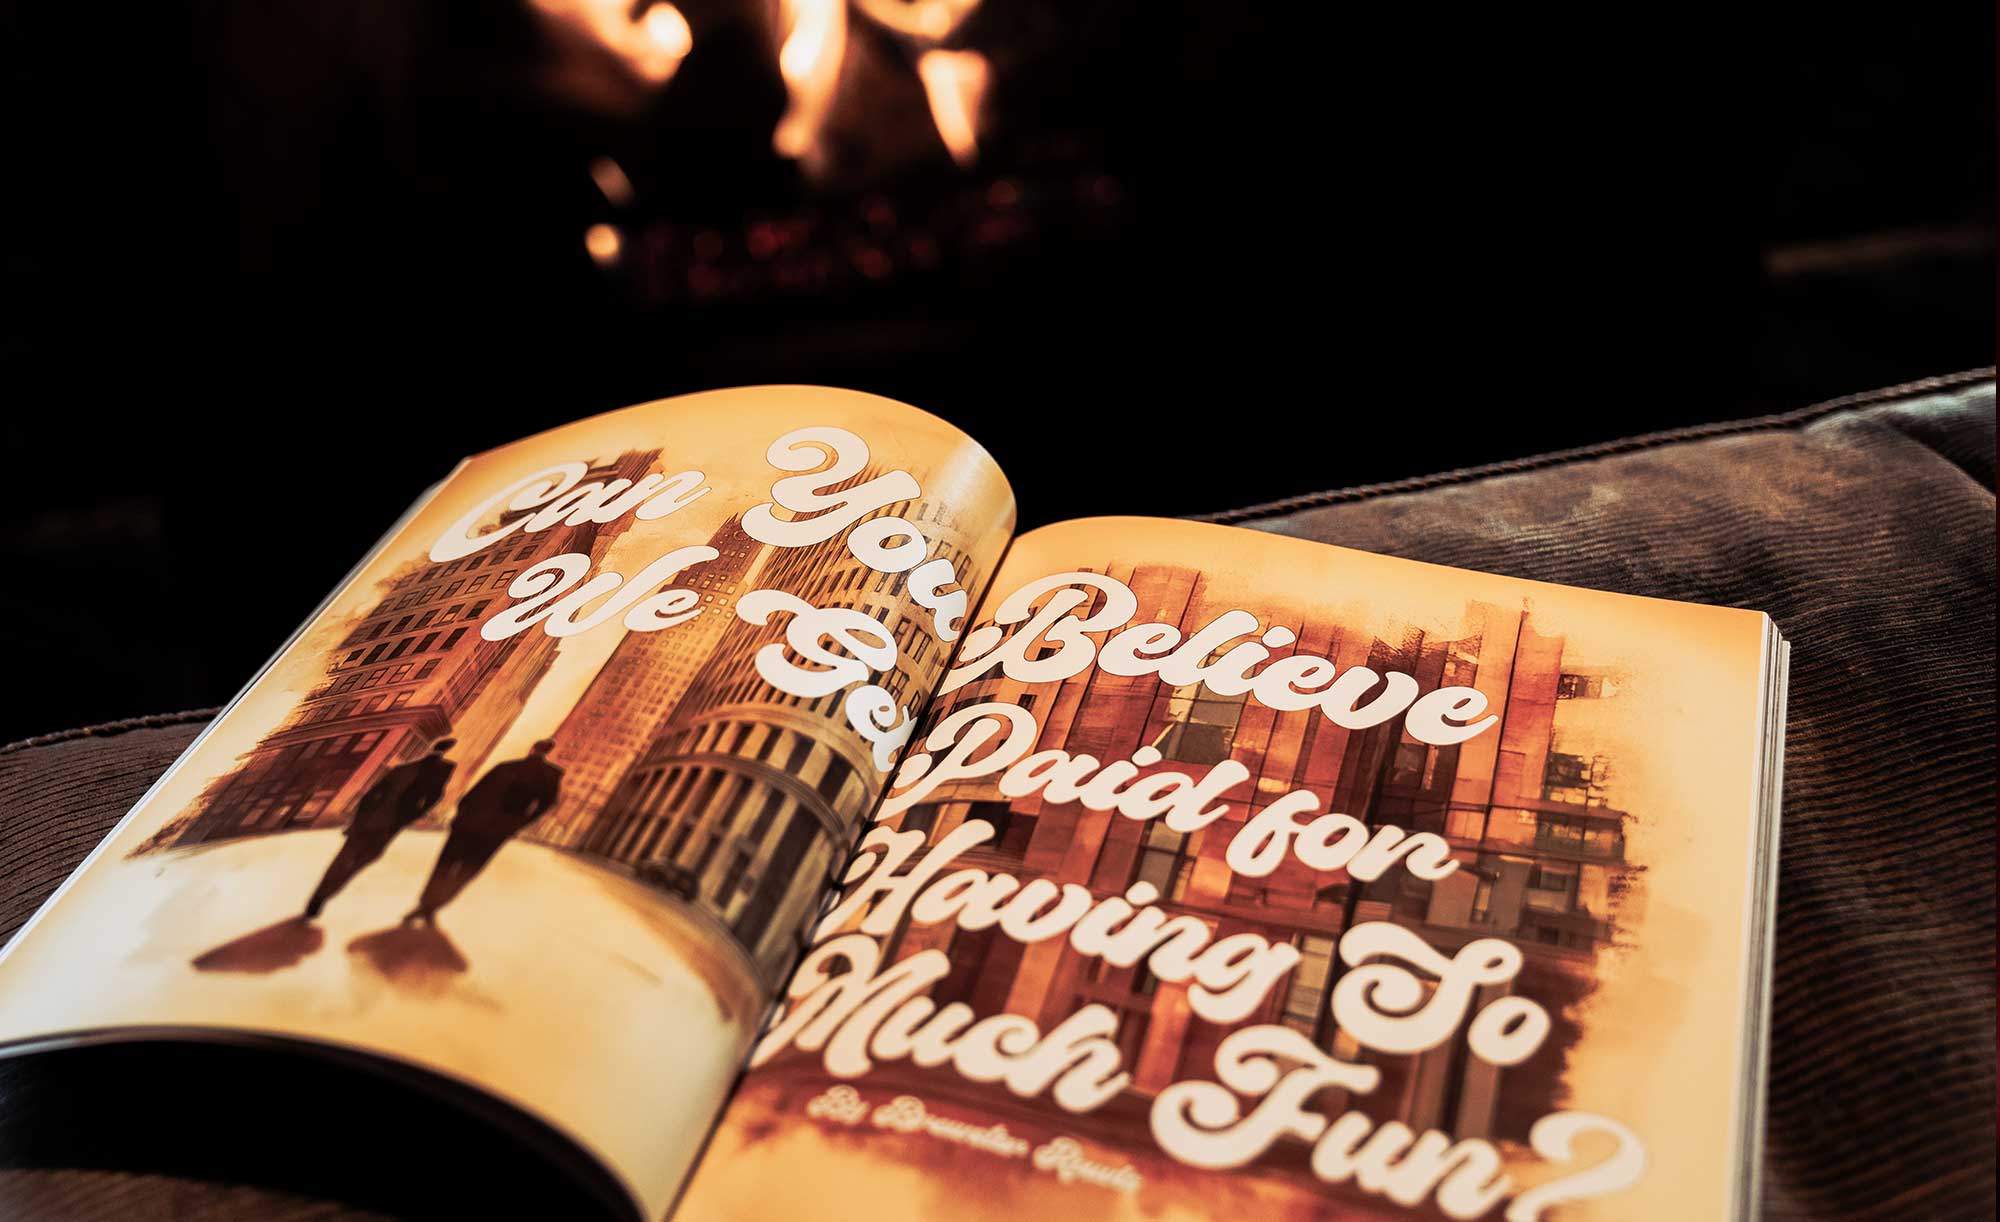 Can You Believe
We Get Paid for
Having So
Much Fun?
By Brewster Rawls